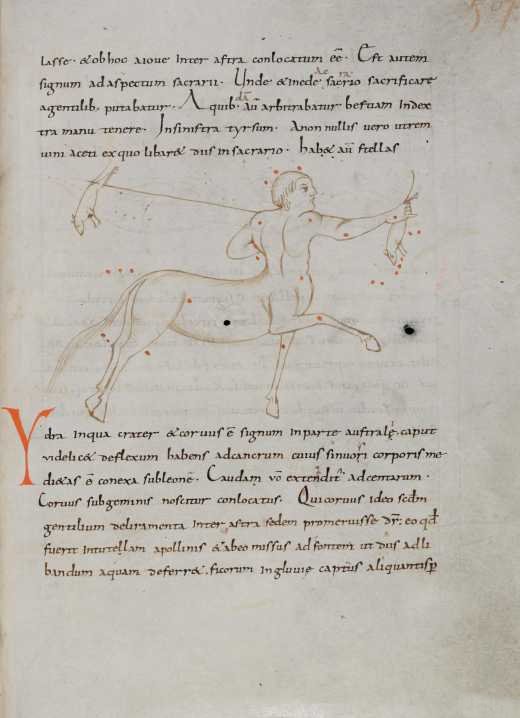 lasse · & ob hoc a ioue inter astra conlocatum eē · Est autem
signum ad aspectum sacrarii · Unde & inede sacrio sacrificare
agentilib; putabatur · A quib; aū arbitrabatur bestiam in dex
tra manu tenere · In sinistra tyrsum · A non nullis uero utrem
uini aceti ex quo libar& diis in sacrario · hab& aū stellas
Ydra in qua crater & coruus ē signum in parte australe, caput
uidelic& deflexum habens ad cancrum cuius sinuosi corporis me
di&as ē conexa sub leone · Caudam uō extendit ad centarum ·
Coruus sub geminis noscitur conlocatus · Qui coruus ideo scdm
gentilium deliramenta inter astra sedem promeruisse dr̄; eo qd
fuerit in tutellam apollinis & ab eo missus ad fontem ut diis ad li
bandum aquam deferr&, ficorum ingluuie captus aliquantisp